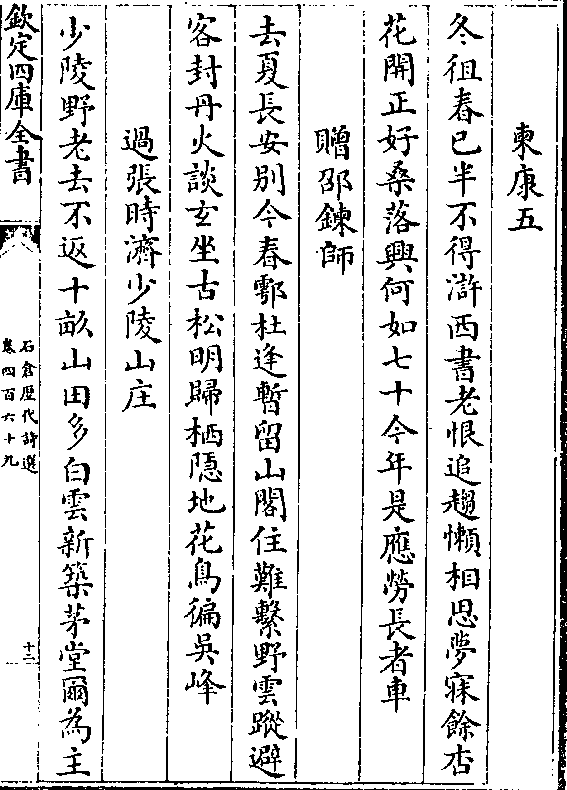 柬康五
冬徂春已半不得滸西書老恨追趨懶相思夢寐餘杏
花開正好桑落興何如七十今年是應勞長者車
贈邵鍊師
去夏長安別今春鄠杜逢暫留山閣住難繫野雲蹤避
客封丹火談玄坐古松明歸栖隱地花鳥徧吳峰
過張時濟少陵山庄
少陵野老去不返十畝山田多白雲新築茅堂爾為主
欽定四庫全書
石倉歴代詩選
卷四百六十九
十二